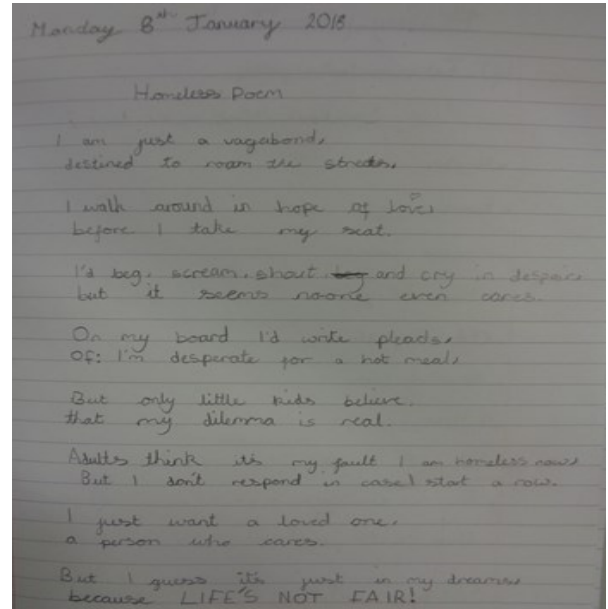 Monday 8th January 2018
Homeless Poem
I am just a vagabond,
destined to roam the streets.
I walk around in hope of love,
before I take my seat.
I'd beg, scream, shout beg and cry in despair
but it seems noone even cares.
On my board I'd write pleads,
Of: I'm desperate for a hot meal,
But only little kids believe.
that my dilemma is real.
Adults think it's my fault I am homeless now,
But I don't respond in case I start a row.
I just want a loved one,
a person who cares.
But I guess it's just in my dreams,
because LIFE'S NOT FAIR!